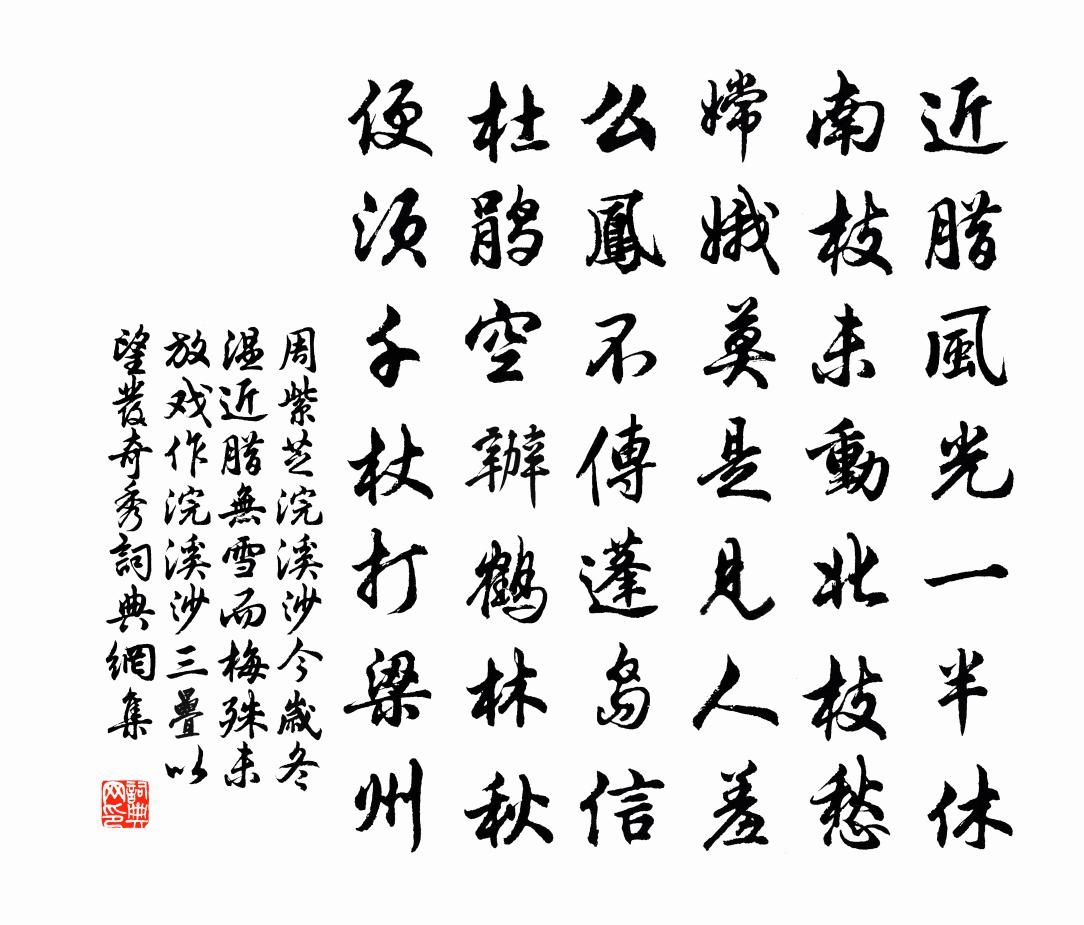 近腊風光一半休
南枝未動北枝愁
嫦娥莫是見人羞
么鳳不傳蓬島信
杜鹃空辦鶴林秋
便须千杖打梁州
周紫芝浣溪沙今歲冬
温近腊無雪而梅殊未
放戏作浣溪沙三疊以
望發奇秀詞典網集
詞典网印